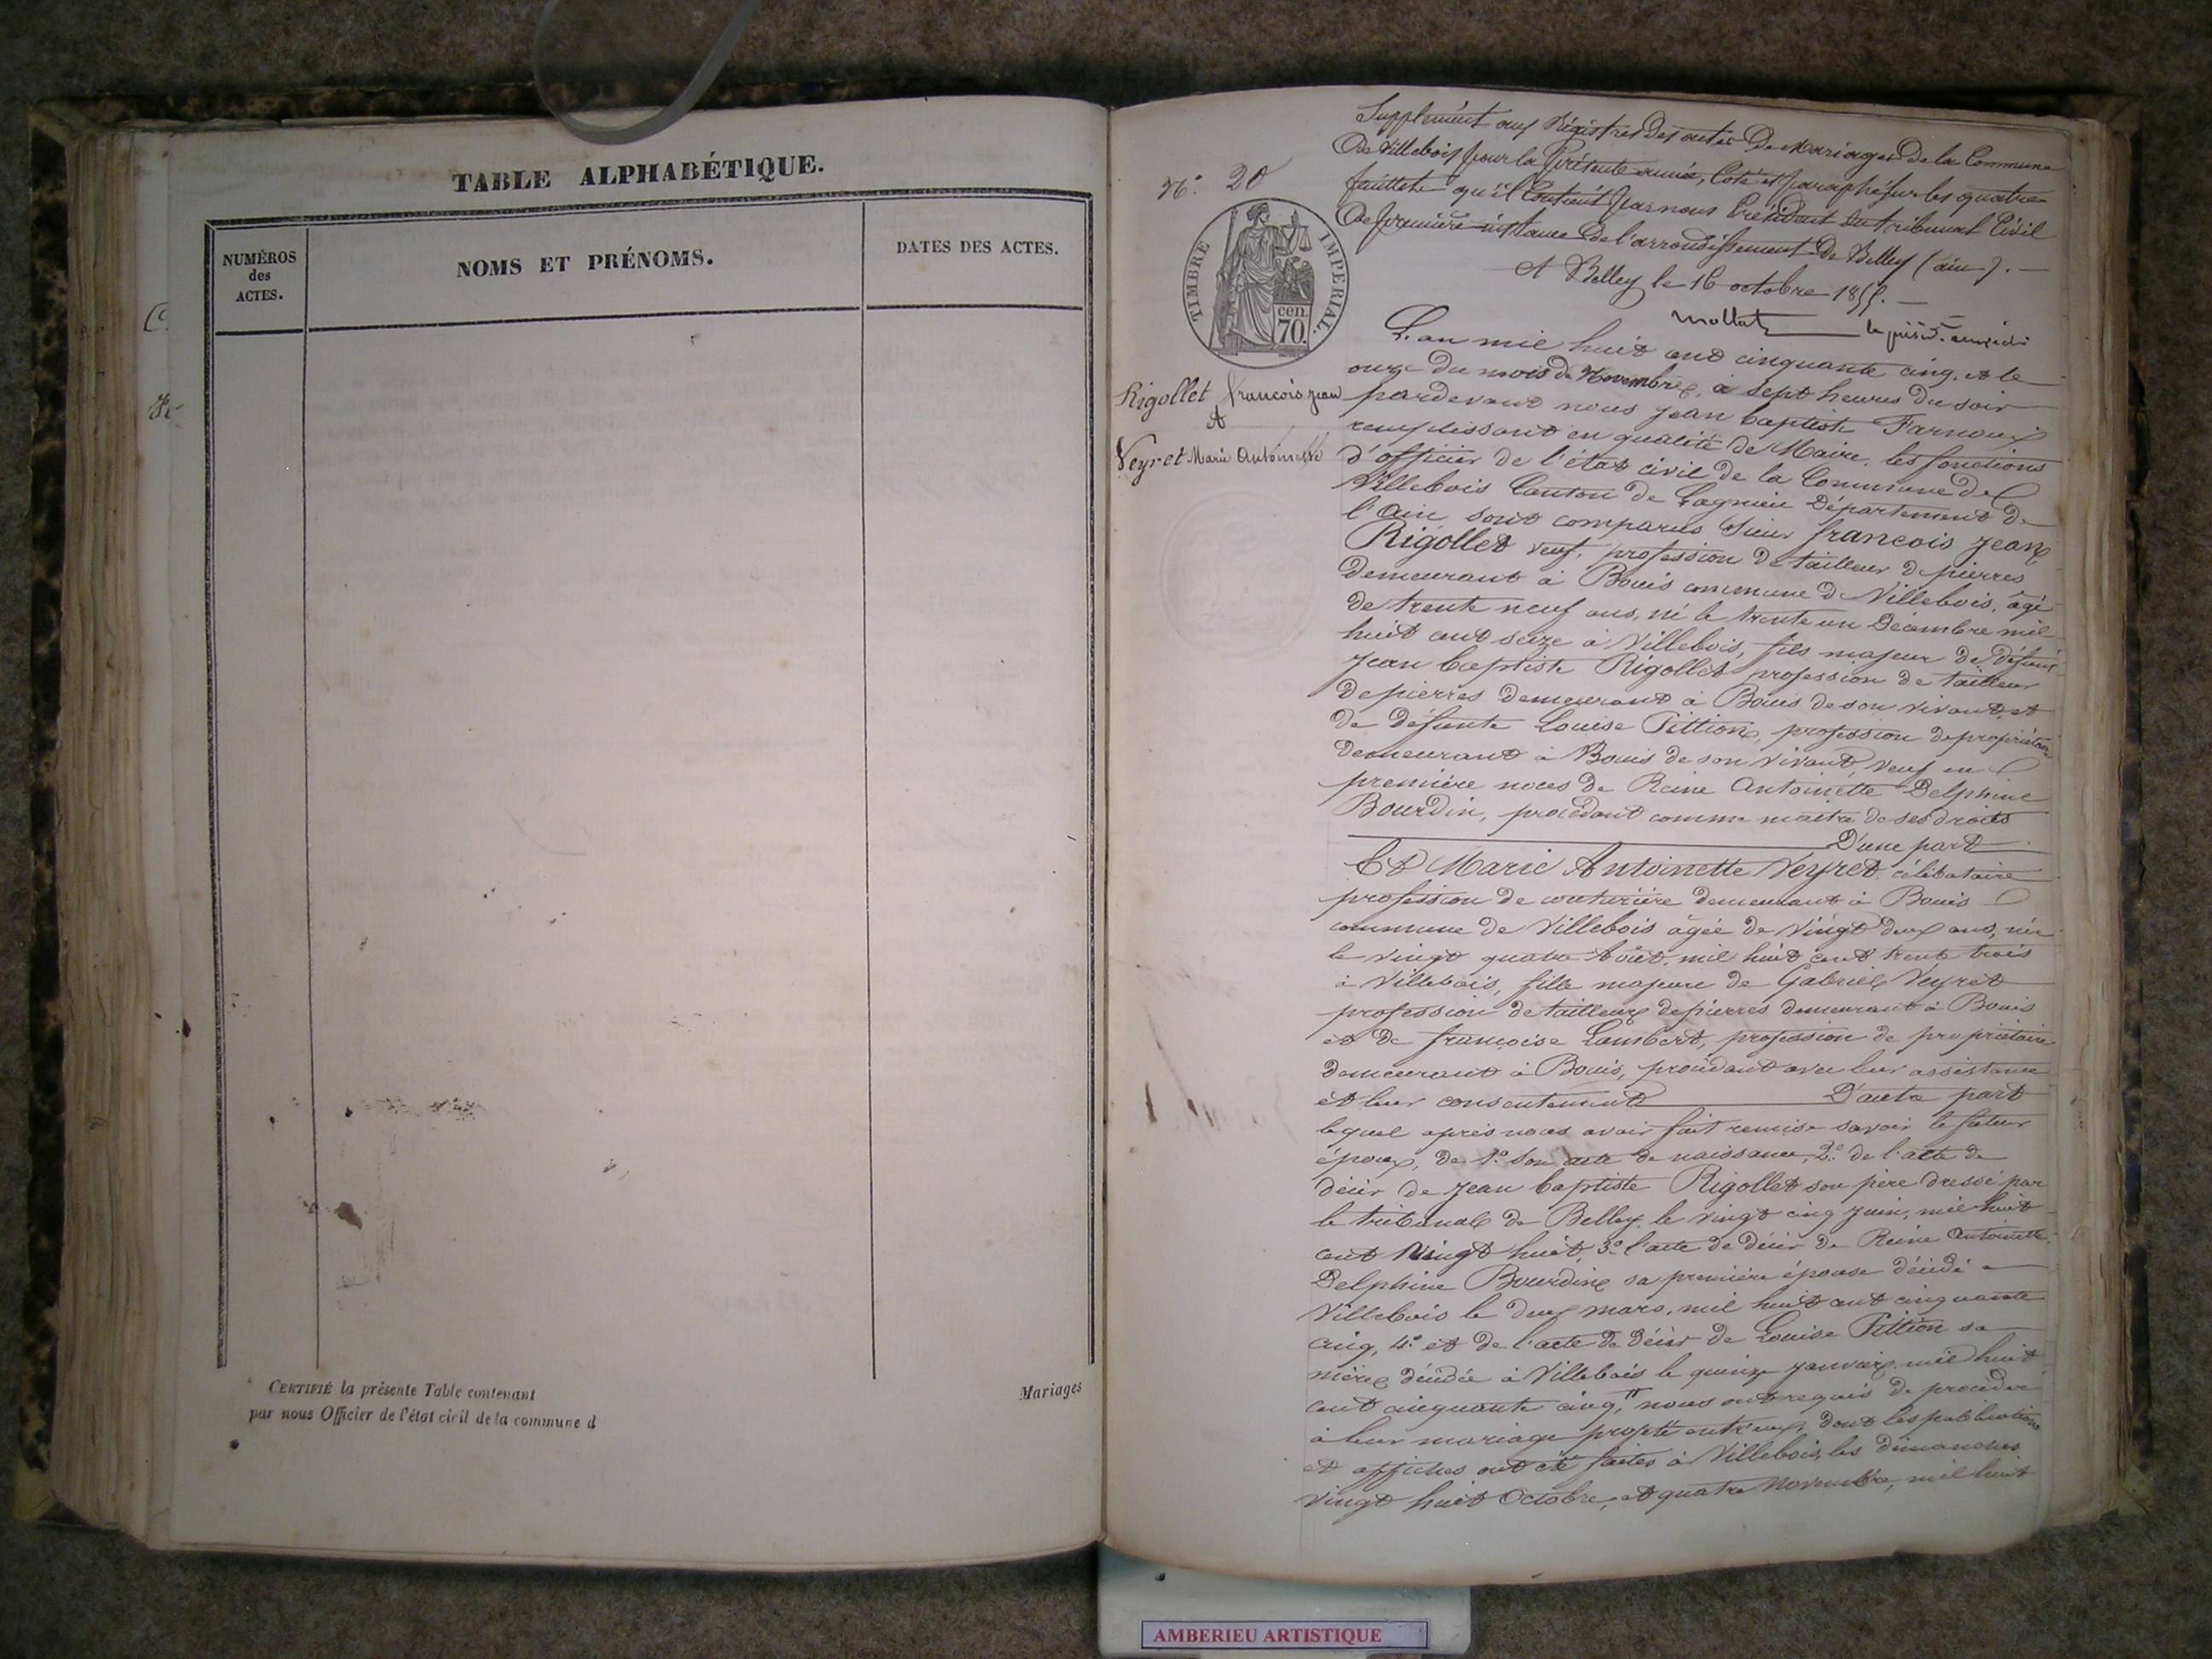 TABLE ALPHABÉTIQUE.
NUMÉROS
des
ACTES.
NOMS ET PRÉNOMS.
DATES DES ACTES.
CERTIFIÉ la présente Table contenant
par nous Officier de l'état civil de la commune d
Mariages
Supplément aux Régistres des actes De Mariages De la Commune
De Villebois pour la Présente année, Coté et paraphé sur les quatre
feuillets qu'il Contient Par nous Président Du tribunal Civil
De première instance De l'arrondissement De Belley (ain). —
A Belley le 16 octobre 1855. —
N°. 20
TIMBRE IMPERIAL.
cen.
70.
Rigollet francois jean
&
Veyret Marie Antoinette
L'an mil huit cent cinquante cinq, et le
onze du mois de Novembre, à sept heures du soir
pardevant nous Jean baptiste Farnoux
remplissant en qualité de Maire, les fonctions
d'officier de l'état civil de la Commune de
Villebois Canton de Lagnieu Département de
l'Ain sont comparus Sieur francois Jean
Rigollet veuf, profession de tailleur de pierres
demeurant à Bouis commune de Villebois, âgé
de trente neuf ans, né le trente un Décembre mil
huit cent seize à Villebois, fils majeur de défunt
Jean baptiste Rigollet profession de tailleur
de pierres demeurant à Bouis de son vivant, et
de défunte Louise Pittion, profession de propriétaire
demeurant à Bouis de son vivant, veuf en
première noces de Reine Antoinette Delphine
Bourdin, procédant comme maitre de ses droits
D'une part
Et Marie Antoinette Veyret, célibataire
profession de couturière demeurant à Bouis
commune de Villebois âgée de vingt deux ans, née
le vingt quatre Août, mil huit cent trente trois
à Villebois, fille majeure de Gabriel Veyret
profession de tailleur de pierres demeurant à Bouis
et de françoise Lambert, profession de propriétaire
demeurant à Bouis, procédant avec leur assistance
et leur consentement D'autre part
lequel après nous avoir fait remise savoir le futur
époux, de 1° Son acte de naissance, 2° de l'acte de
décès de Jean baptiste Rigollet son père dressé par
le tribunal de Belley le vingt cinq Juin, mil huit
cent vingt huit, 3° l'acte de décès de Reine Antoinette
Delphine Bourdin sa première épouse décédé a
Villebois le deux mars, mil huit cent cinquante
cinq, 4° et de l'acte de décès de Louise Pittion sa
mère décédée à Villebois le quinze Janvier mil huit
cent cinquante cinq, nous ont requis de procéder
à leur mariage projeté entr'eux, dont les publications
et affiches ont été faites à Villebois, les dimanches
vingt huit Octobre, et quatre Novembre, mil huit
AMBERIEU ARTISTIQUE